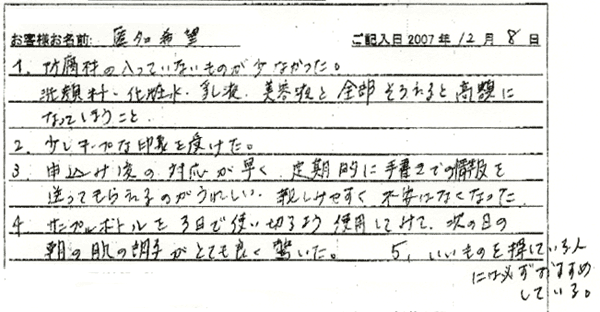 お客様お名前: 匿名希望 ご記入日2007年12月8日
1. 防腐材の入っていないものが少なかった。
洗顔料・化粧水・乳液・美容液と全部そろえると高額に
なってしまうこと
2. 少しチープな印象を受けた。
3 申込み後の対応が早く 定期的に手書きでの情報を
送ってもらえるのがうれしい。親しみやすく不安はなくなった
4 サンプルボトルを3日で使い切るよう使用してみて、次の日の
朝の肌の調子がとても良く驚いた。 5, いいものを探している人
には必ずおすすめ
している。